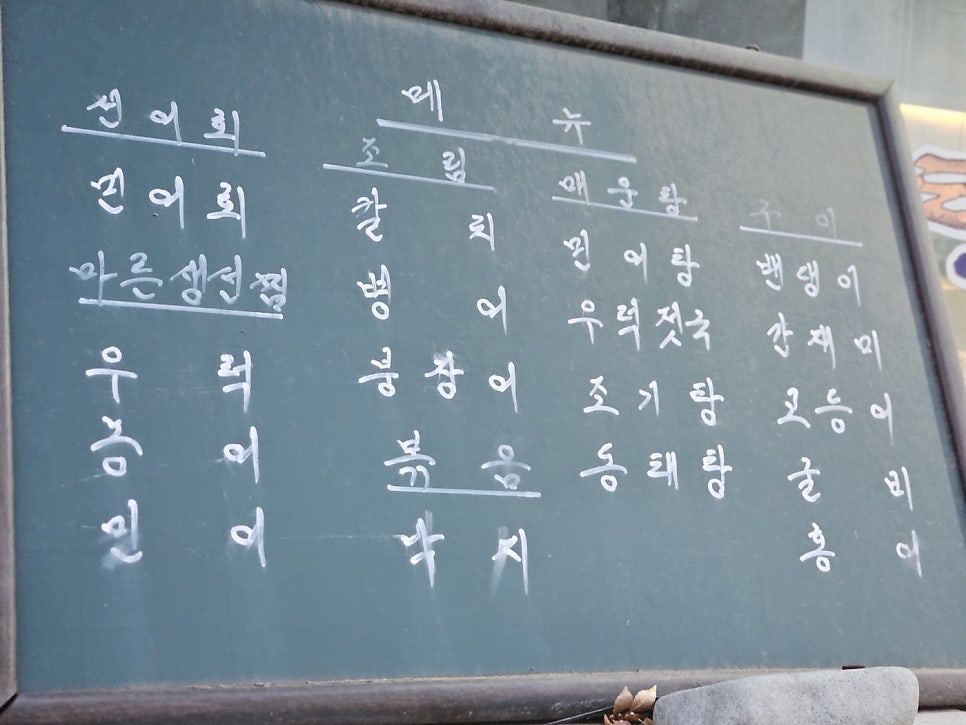 메뉴
선어회
민어회
마른생선찜
우럭
숭어
민어
조림
칼치
병어
붕장어
볶음
낙지
매운탕
민어탕
우럭젓국
조기탕
동태탕
구이
밴댕이
간재미
고등어
굴비
홍어